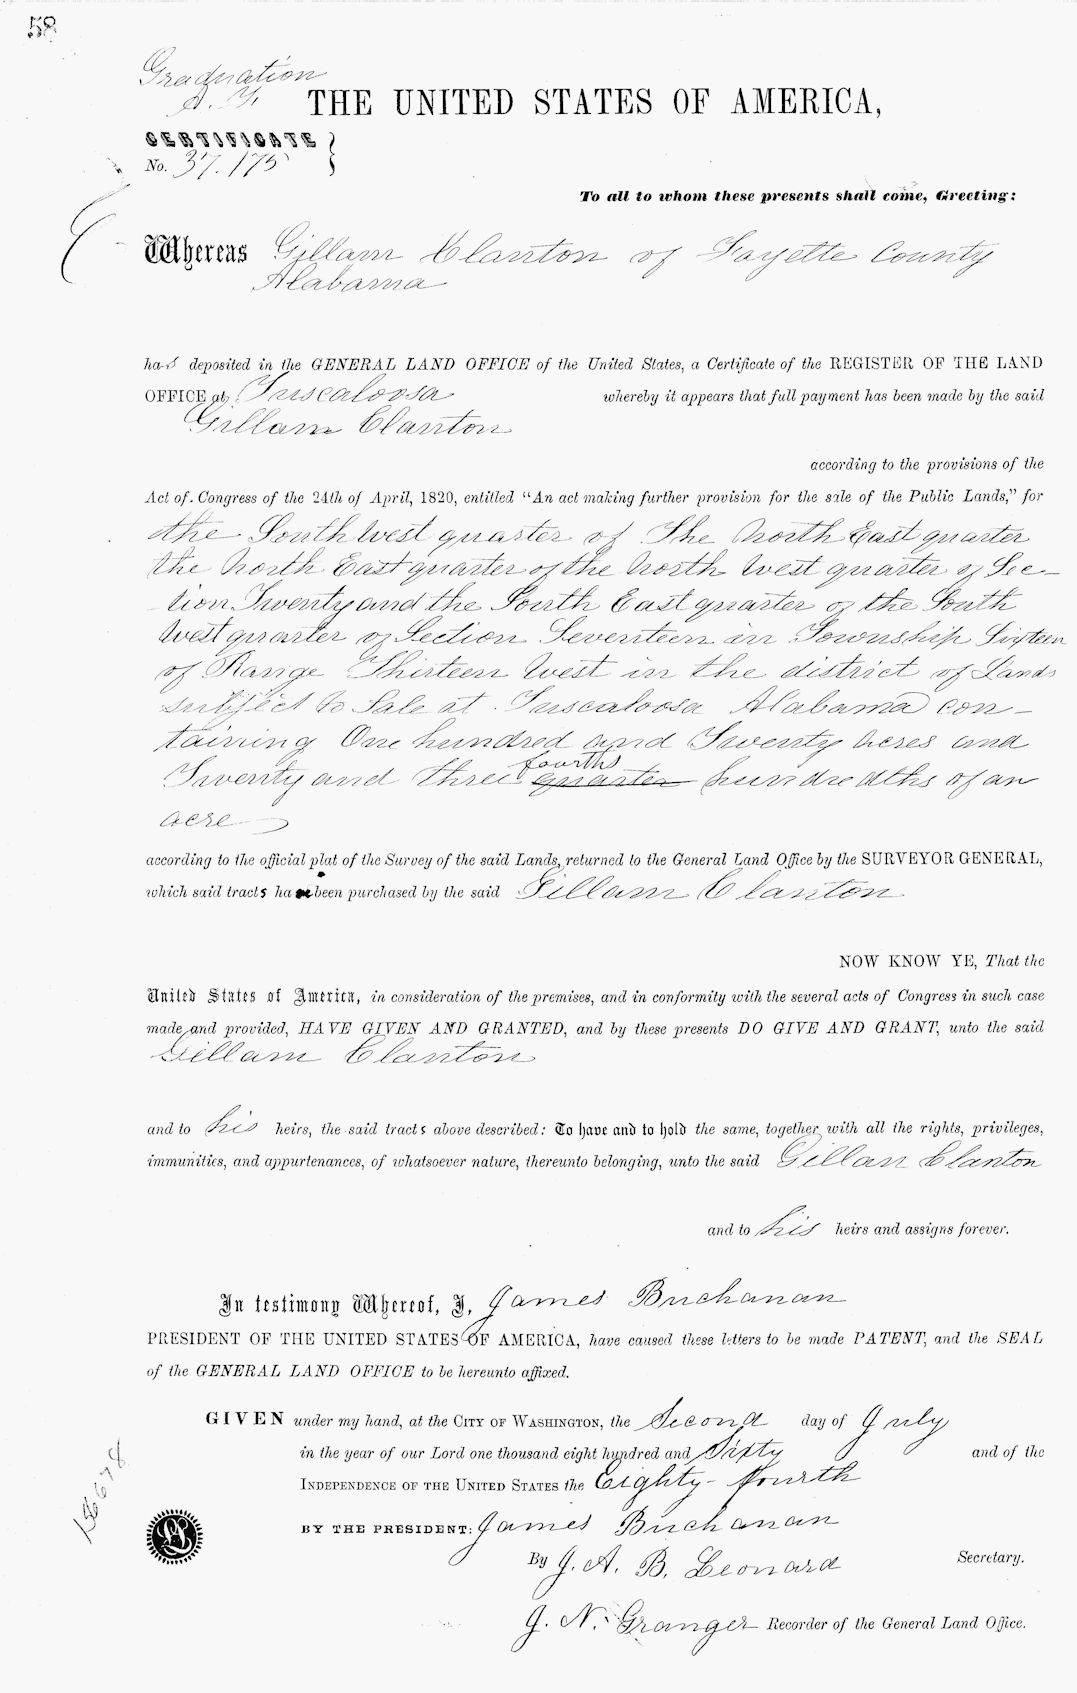 58
Graduation
THE UNITED STATES OF AMERICA,
CERTIFICATE
No. 37.175
To all to whom these presents shall come, Greeting:
Whereas Gillam Clanton of Fayette County
Alabama
has deposited in the GENERAL LAND OFFICE of the United States, a Certificate of the REGISTER OF THE LAND
OFFICE at Tuscaloosa whereby it appears that full payment has been made by the said
Gillam Clanton
according to the provisions of the
Act of Congress of the 24th of April, 1820, entitled “An act making further provision for the sale of the Public Lands,” for
the South West quarter of The North East quarter
the North East quarter of the North West quarter of Sec-
tion Twenty and the South East quarter of the South
West quarter of Section Seventeen in Township Sixteen
of Range Thirteen West in the district of Lands
subject to Sale at Tuscaloosa Alabama con-
taining One hundred and Twenty acres and
fourths
Twenty and three quarter hundredths of an
acre
according to the official plat of the Survey of the said Lands, returned to the General Land Office by the SURVEYOR GENERAL,
which said tracts ha been purchased by the said Gillam Clanton
NOW KNOW YE, That the
United States of America, in consideration of the premises, and in conformity with the several acts of Congress in such case
made and provided, HAVE GIVEN AND GRANTED, and by these presents DO GIVE AND GRANT, unto the said
Gillam Clanton
and to his heirs, the said tracts above described: To have and to hold the same, together with all the rights, privileges,
immunities, and appurtenances, of whatsoever nature, thereunto belonging, unto the said Gillan Clanton
and to his heirs and assigns forever.
In testimony Whereof, I, James Buchanan
PRESIDENT OF THE UNITED STATES OF AMERICA, have caused these letters to be made PATENT, and the SEAL
of the GENERAL LAND OFFICE to be hereunto affixed.
GIVEN under my hand, at the CITY OF WASHINGTON, the Second day of July
in the year of our Lord one thousand eight hundred and Sixty and of the
INDEPENDENCE OF THE UNITED STATES the Eighty-fourth
BY THE PRESIDENT: James Buchanan
By J. A. B. Leonard Secretary.
J. N. Granger Recorder of the General Land Office.